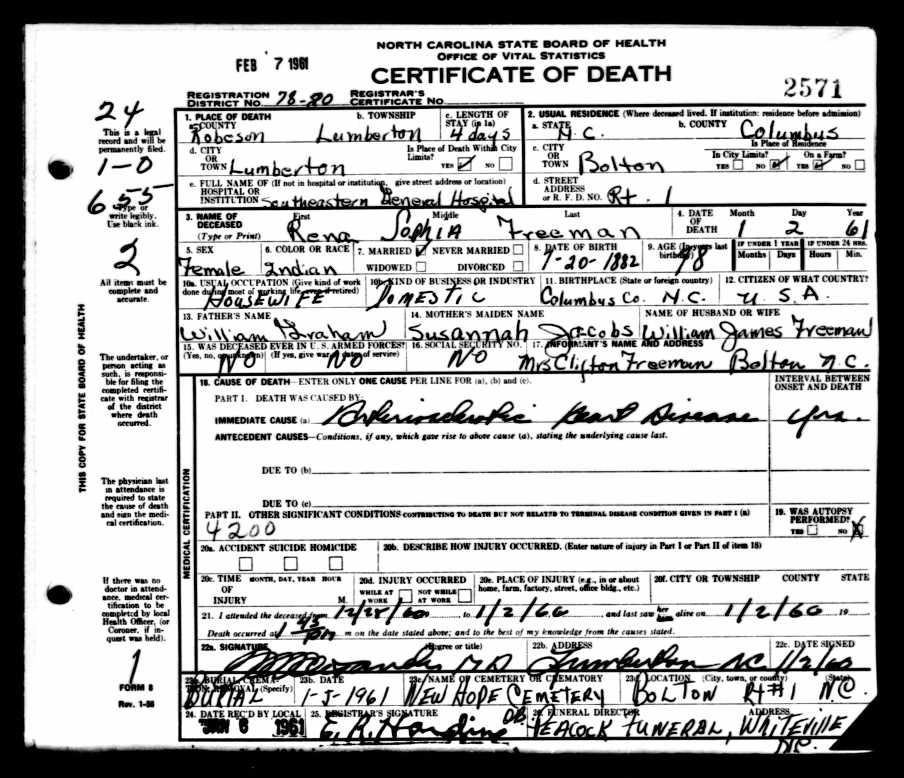 NORTH CAROLINA STATE BOARD OF HEALTH
OFFICE OF VITAL STATISTICS
FEB 7 1961
CERTIFICATE OF DEATH
2571
REGISTRATION DISTRICT NO. 78-80 REGISTRAR'S CERTIFICATE NO.
24
This is a legal record and will be permanently filed.
1-0
655
Type or write legibly. Use black ink.
2
All items must be complete and accurate.
The undertaker, or person acting as such, is responsible for filing the completed certificate with registrar of the district where death occurred.
THIS COPY FOR STATE BOARD OF HEALTH
The physician last in attendance is required to state the cause of death and sign the medical certification.
If there was no doctor in attendance, medical certification to be completed by local Health Officer, (or Coroner, if inquest was held).
1
FORM 8
Rev. 1-56
1. PLACE OF DEATH
a. COUNTY Robeson
b. TOWNSHIP Lumberton
c. LENGTH OF STAY (in 1a) 4 days
2. USUAL RESIDENCE (Where deceased lived. If institution: residence before admission)
a. STATE N.C.
b. COUNTY Columbus
d. CITY OR TOWN Lumberton
Is Place of Death Within City Limits? YES NO
c. CITY OR TOWN Bolton
Is Place of Residence
In City Limits? YES NO
On a Farm? YES NO
e. FULL NAME OF (If not in hospital or institution, give street address or location)
HOSPITAL OR INSTITUTION Southeastern General Hospital
d. STREET ADDRESS or R. F. D. NO. Rt. 1
3. NAME OF DECEASED (Type or Print)
First Middle Last
Rena Sophia Freeman
4. DATE OF DEATH Month Day Year
1 2 61
5. SEX Female
6. COLOR OR RACE Indian
7. MARRIED NEVER MARRIED
WIDOWED DIVORCED
8. DATE OF BIRTH 7-20-1882
9. AGE (In years last birthday) 78
IF UNDER 1 YEAR Months Days
IF UNDER 24 HRS. Hours Min.
10a. USUAL OCCUPATION (Give kind of work done during most of working life, even if retired) HOUSEWIFE
10b. KIND OF BUSINESS OR INDUSTRY DOMESTIC
11. BIRTHPLACE (State or foreign country) Columbus Co. N.C.
12. CITIZEN OF WHAT COUNTRY? U.S.A.
13. FATHER'S NAME William Graham
14. MOTHER'S MAIDEN NAME Susannah Jacobs
NAME OF HUSBAND OR WIFE William James Freeman
15. WAS DECEASED EVER IN U. S. ARMED FORCES?
(Yes, no, or unknown) (If yes, give war or dates of service)
No No
16. SOCIAL SECURITY NO. No
17. INFORMANT'S NAME AND ADDRESS
Mrs Clifton Freeman Bolton N.C.
MEDICAL CERTIFICATION
18. CAUSE OF DEATH—ENTER ONLY ONE CAUSE PER LINE FOR (a), (b) and (c).
INTERVAL BETWEEN ONSET AND DEATH
PART I. DEATH WAS CAUSED BY:
IMMEDIATE CAUSE (a) Arteriosclerotic Heart Disease yrs.
ANTECEDENT CAUSES—Conditions, if any, which gave rise to above cause (a), stating the underlying cause last.
DUE TO (b)
DUE TO (c)
PART II. OTHER SIGNIFICANT CONDITIONS CONTRIBUTING TO DEATH BUT NOT RELATED TO TERMINAL DISEASE CONDITION GIVEN IN PART I (a)
4200
19. WAS AUTOPSY PERFORMED? YES NO X
20a. ACCIDENT SUICIDE HOMICIDE
20b. DESCRIBE HOW INJURY OCCURRED. (Enter nature of injury in Part I or Part II of item 18)
20c. TIME OF INJURY MONTH, DAY, YEAR HOUR M.
20d. INJURY OCCURRED WHILE AT WORK NOT WHILE AT WORK
20e. PLACE OF INJURY (e.g., in or about home, farm, factory, street, office bldg., etc.)
20f. CITY OR TOWNSHIP COUNTY STATE
21. I attended the deceased from 12/28/60 to 1/2/60 and last saw her/him alive on 1/2/60 19
Death occurred at m on the date stated above; and to the best of my knowledge from the causes stated.
22a. SIGNATURE (Degree or title) M.D.
22b. ADDRESS Lumberton N.C.
22c. DATE SIGNED 1/2/60
23a. BURIAL, CREMATION, REMOVAL (Specify) BURIAL
23b. DATE 1-5-1961
23c. NAME OF CEMETERY OR CREMATORY NEW HOPE CEMETERY
23d. LOCATION (City, town, or county) (State) BOLTON RT#1 N.C.
24. DATE REC'D BY LOCAL JAN 6 1961
25. REGISTRAR'S SIGNATURE E. R. Hardin
26. FUNERAL DIRECTOR ADDRESS
PEACOCK FUNERAL, WHITEVILLE N.C.